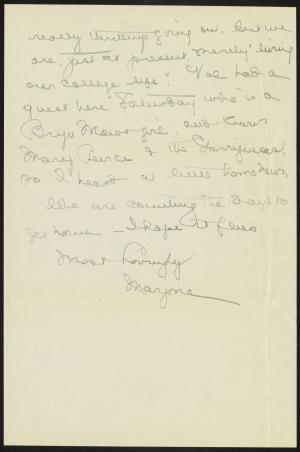 really thrilling going on, but we
are, just at present, "merely living
our college life". Val had a
guest here Saturday who is a
Bryn Mawr girl, and knows
Mary Peirce & the
so I heard a little home news.
We are counting the days to
get home – I hope it flies
Most Lovingly
Marjorie